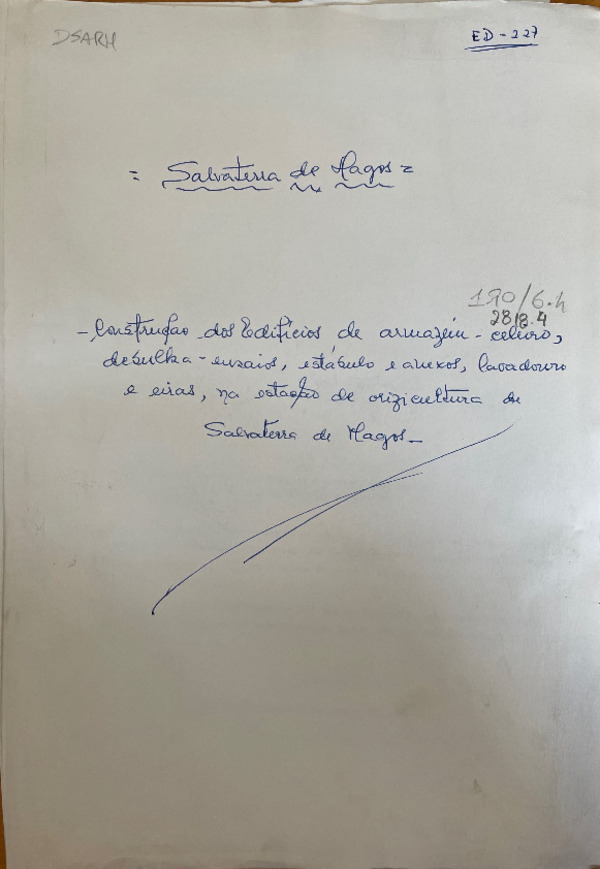 DSARH
ED-227
= Salvaterra de Magos =
190/6.4
28/8.4
- Construção dos Edifícios de armazém - celeiro,
debulha - ensaios, estábulo e anexos, lavadouro
e eiras, na estação de orizicultura de
Salvaterra de Magos -